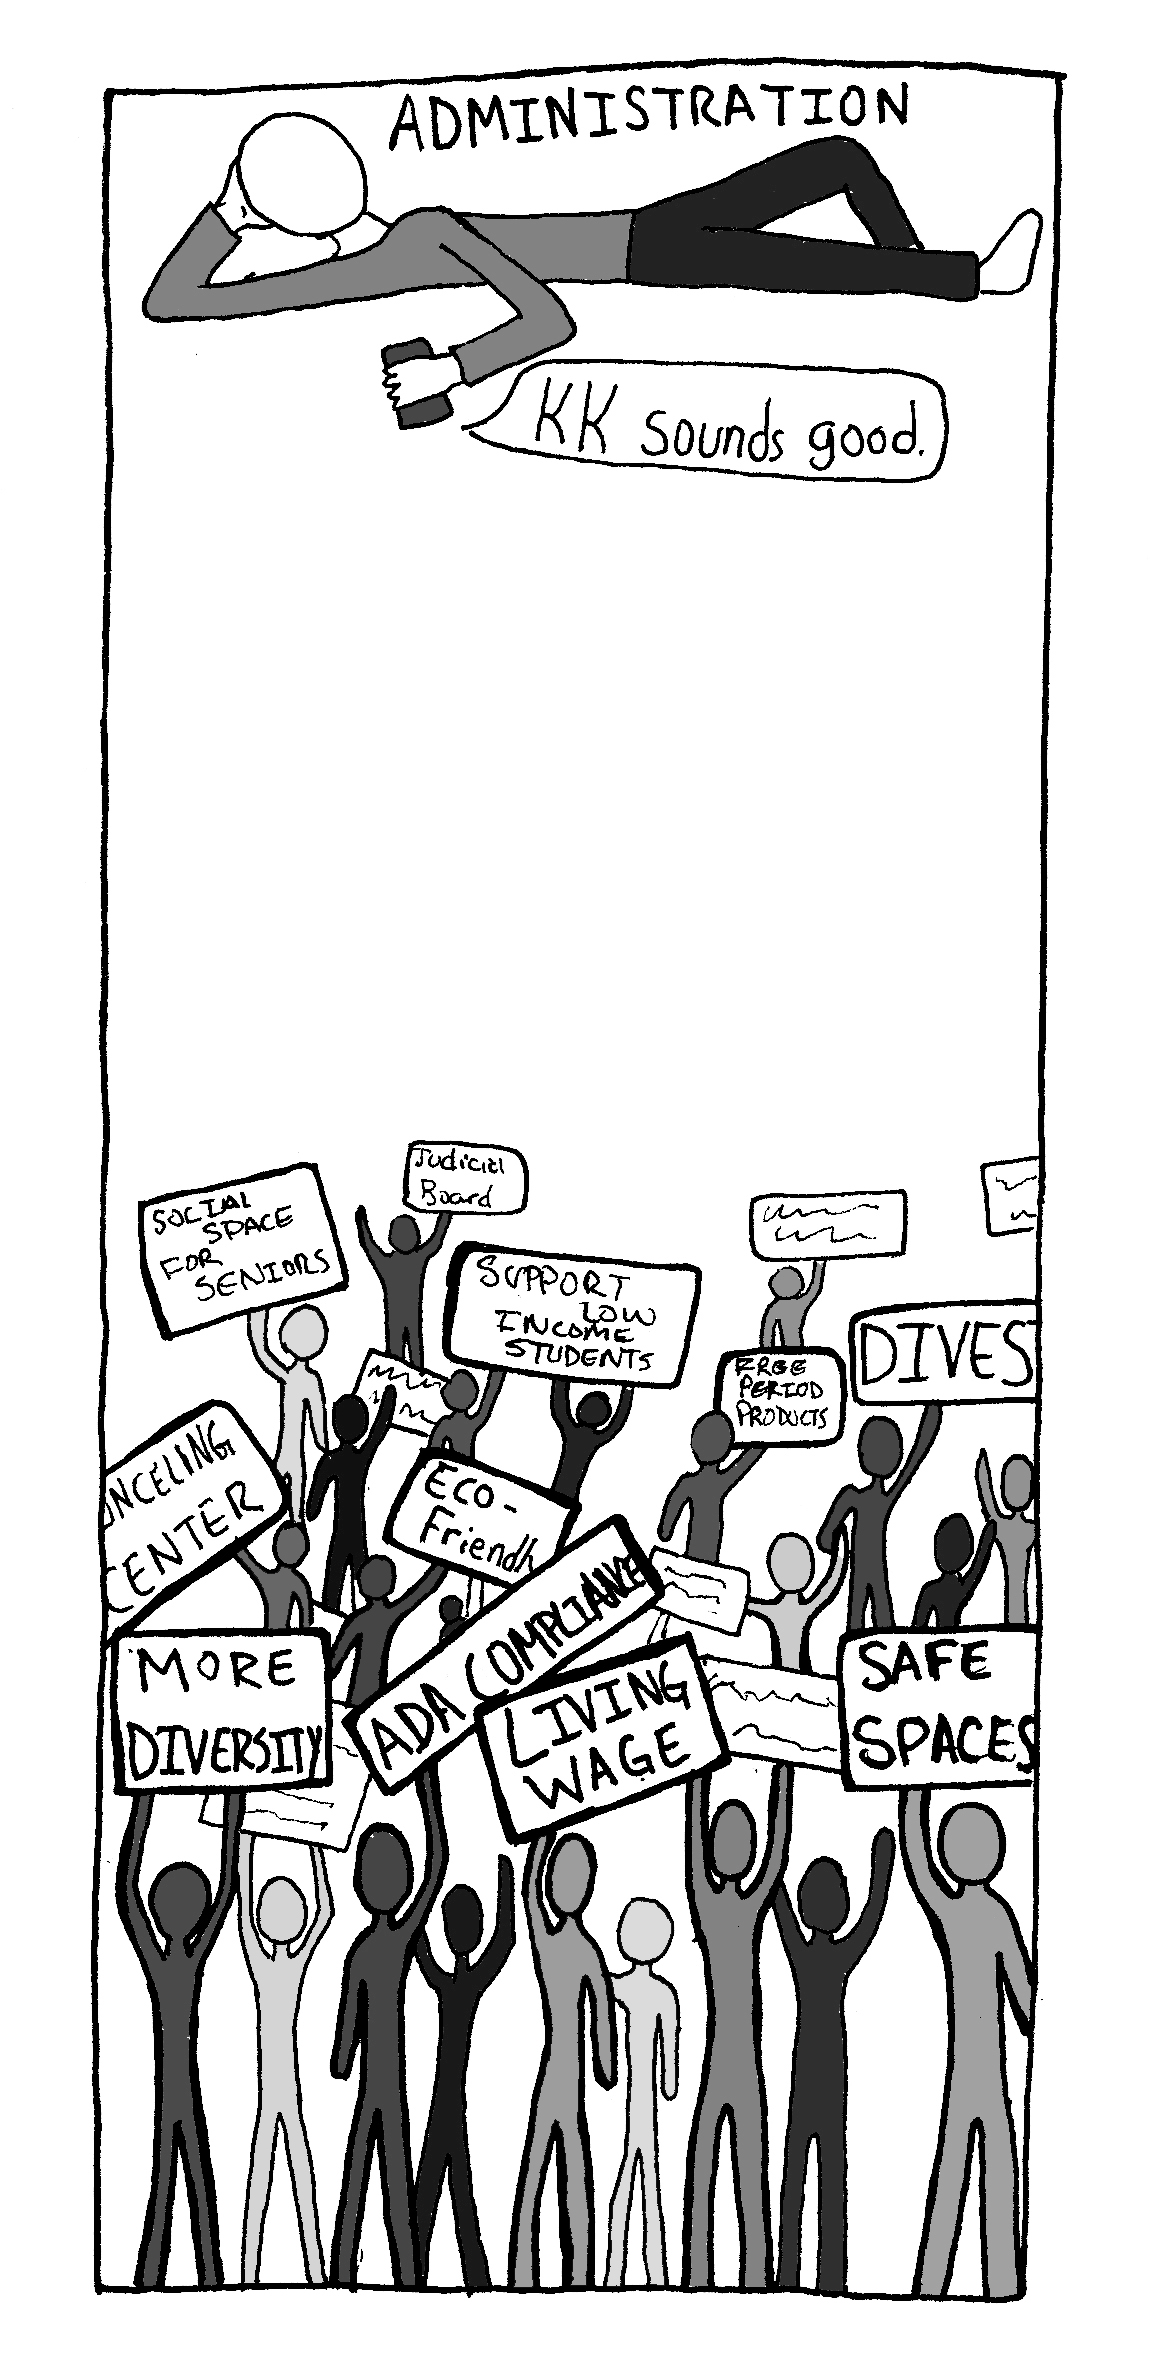 ADMINISTRATION
KK sounds good.
Judicial
Board
SOCIAL
SPACE
FOR
SENIORS
SUPPORT
LOW
INCOME
STUDENTS
FREE
PERIOD
PRODUCTS
DIVES
ONCELING
CENTER
ECO-
Friendly
ADA COMPLIANCE
MORE
DIVERSITY
LIVING
WAGE
SAFE
SPACES